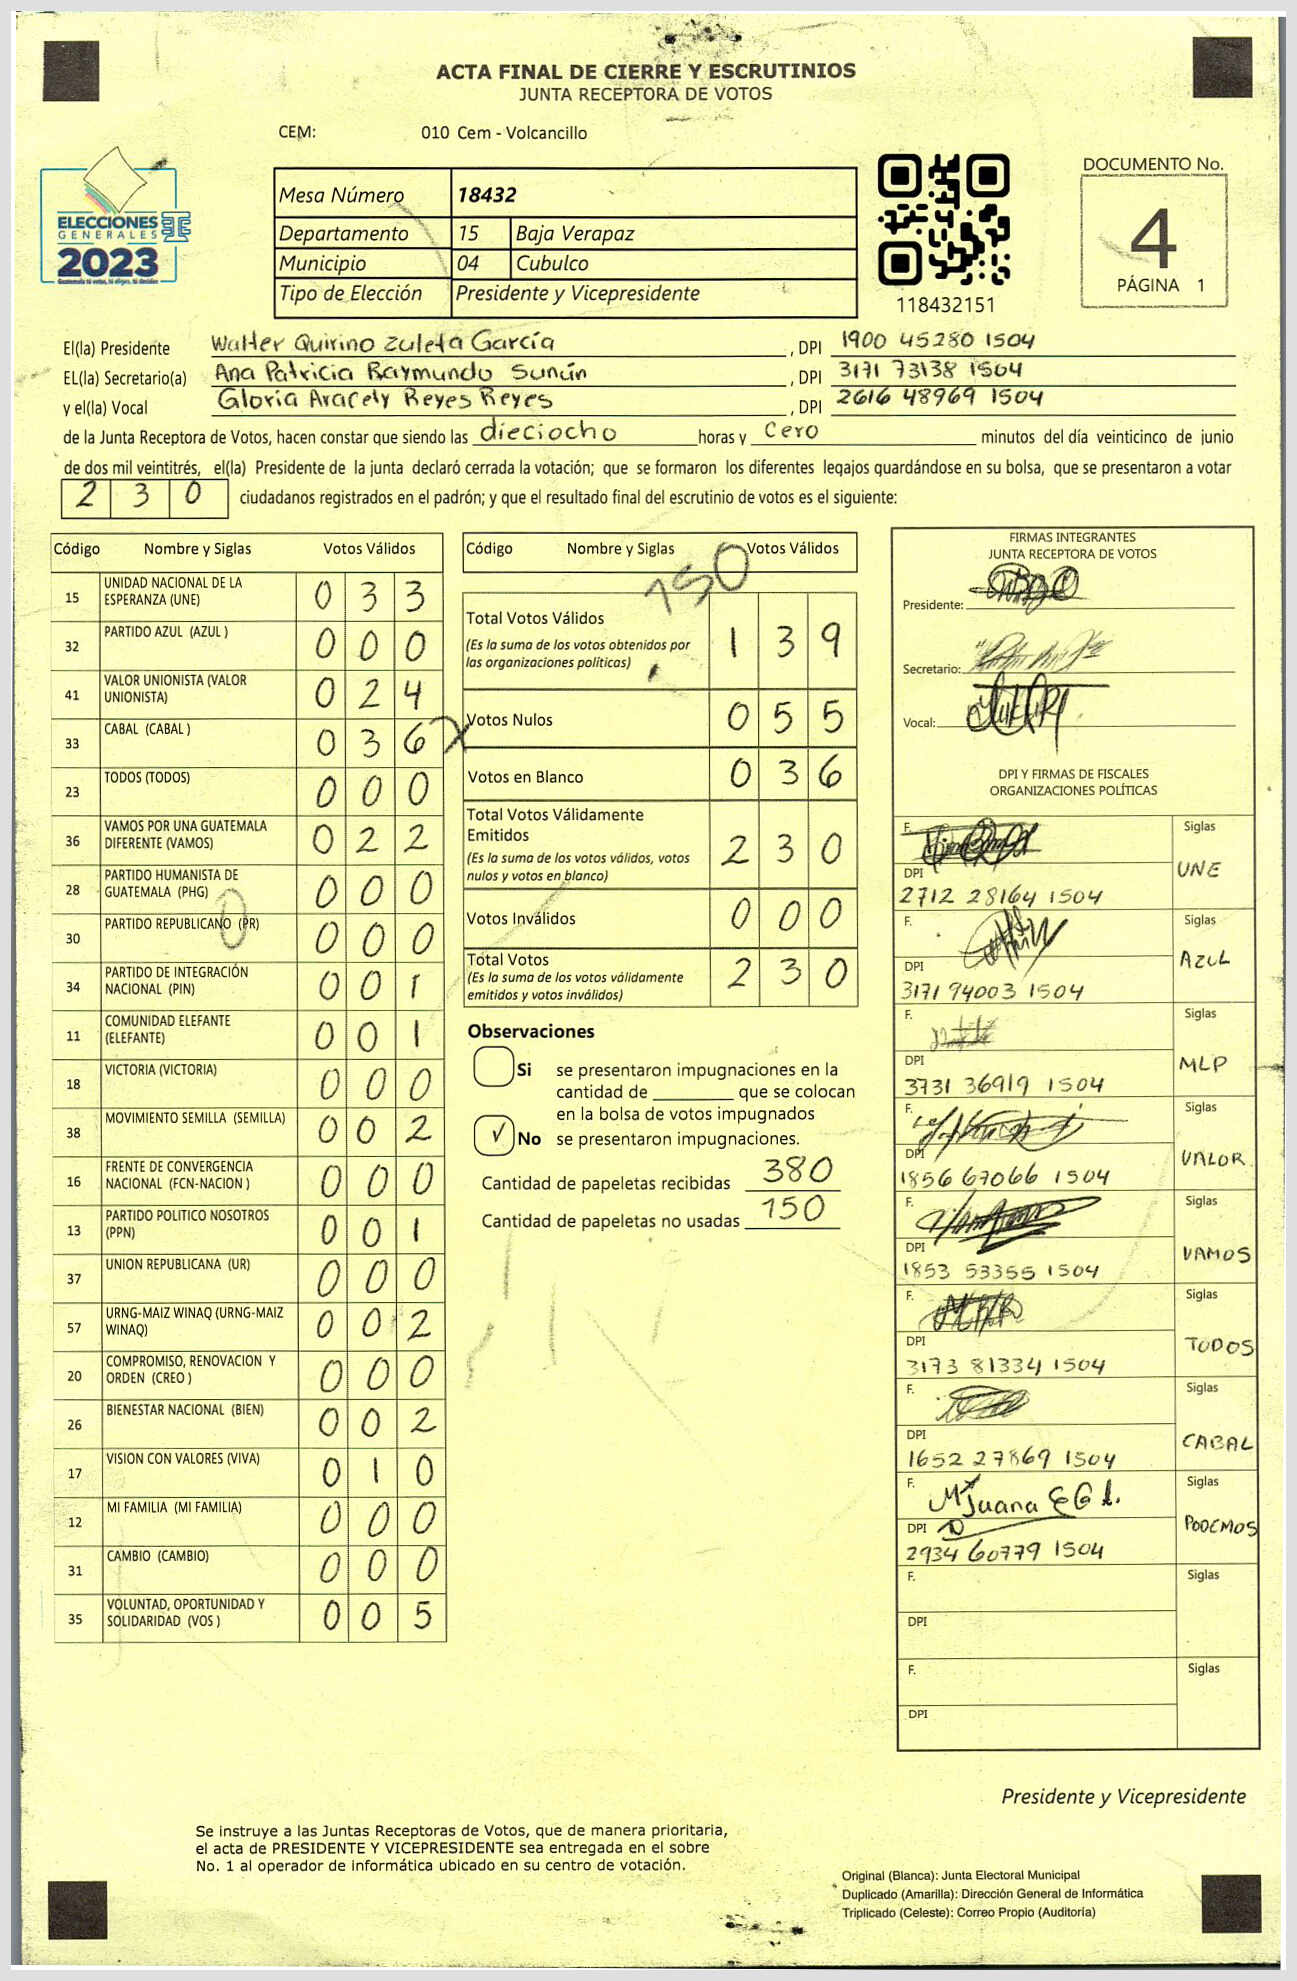 ACTA FINAL DE CIERRE Y ESCRUTINIOS
JUNTA RECEPTORA DE VOTOS
CEM: 010 Cem - Volcancillo
ELECCIONES
GENERALES
2023
Guatemala tú votas, tú eliges, tú decides
Mesa Número 18432
Departamento 15 Baja Verapaz
Municipio 04 Cubulco
Tipo de Elección Presidente y Vicepresidente
118432151
DOCUMENTO No.
4
PÁGINA 1
El(la) Presidente Walter Quirino Zuleta García , DPI 1900 45280 1504
EL(la) Secretario(a) Ana Patricia Raymundo Sunún , DPI 3171 73138 1504
y el(la) Vocal Gloria Aracely Reyes Reyes , DPI 2616 48969 1504
de la Junta Receptora de Votos, hacen constar que siendo las dieciocho horas y Cero minutos del día veinticinco de junio
de dos mil veintitrés, el(la) Presidente de la junta declaró cerrada la votación; que se formaron los diferentes legajos guardándose en su bolsa, que se presentaron a votar
2 3 0 ciudadanos registrados en el padrón; y que el resultado final del escrutinio de votos es el siguiente:
Código Nombre y Siglas Votos Válidos
15 UNIDAD NACIONAL DE LA ESPERANZA (UNE) 0 3 3
32 PARTIDO AZUL (AZUL ) 0 0 0
41 VALOR UNIONISTA (VALOR UNIONISTA) 0 2 4
33 CABAL (CABAL ) 0 3 6
23 TODOS (TODOS) 0 0 0
36 VAMOS POR UNA GUATEMALA DIFERENTE (VAMOS) 0 2 2
28 PARTIDO HUMANISTA DE GUATEMALA (PHG) 0 0 0
30 PARTIDO REPUBLICANO (PR) 0 0 0
34 PARTIDO DE INTEGRACIÓN NACIONAL (PIN) 0 0 1
11 COMUNIDAD ELEFANTE (ELEFANTE) 0 0 1
18 VICTORIA (VICTORIA) 0 0 0
38 MOVIMIENTO SEMILLA (SEMILLA) 0 0 2
16 FRENTE DE CONVERGENCIA NACIONAL (FCN-NACION ) 0 0 0
13 PARTIDO POLITICO NOSOTROS (PPN) 0 0 1
37 UNION REPUBLICANA (UR) 0 0 0
57 URNG-MAIZ WINAQ (URNG-MAIZ WINAQ) 0 0 2
20 COMPROMISO, RENOVACION Y ORDEN (CREO ) 0 0 0
26 BIENESTAR NACIONAL (BIEN) 0 0 2
17 VISION CON VALORES (VIVA) 0 1 0
12 MI FAMILIA (MI FAMILIA) 0 0 0
31 CAMBIO (CAMBIO) 0 0 0
35 VOLUNTAD, OPORTUNIDAD Y SOLIDARIDAD (VOS ) 0 0 5
Código Nombre y Siglas Votos Válidos
150
Total Votos Válidos 1 3 9
(Es la suma de los votos obtenidos por
las organizaciones políticas)
Votos Nulos 0 5 5
Votos en Blanco 0 3 6
Total Votos Válidamente
Emitidos 2 3 0
(Es la suma de los votos válidos, votos
nulos y votos en blanco)
Votos Inválidos 0 0 0
Total Votos 2 3 0
(Es la suma de los votos válidamente
emitidos y votos inválidos)
Observaciones
Si se presentaron impugnaciones en la
cantidad de ________ que se colocan
en la bolsa de votos impugnados
√ No se presentaron impugnaciones.
Cantidad de papeletas recibidas 380
Cantidad de papeletas no usadas 150
FIRMAS INTEGRANTES
JUNTA RECEPTORA DE VOTOS
Presidente:
Secretario:
Vocal:
DPI Y FIRMAS DE FISCALES
ORGANIZACIONES POLÍTICAS
F. Siglas
DPI UNE
2712 28164 1504
F. Siglas
DPI AZUL
3171 94003 1504
F. Siglas
DPI MLP
3731 36919 1504
F. Siglas
DPI VALOR
1856 67066 1504
F. Siglas
DPI VAMOS
1853 53355 1504
F. Siglas
DPI TODOS
3173 81334 1504
F. Siglas
DPI CABAL
1652 27869 1504
F. Juana Siglas
DPI PODEMOS
2934 60779 1504
F. Siglas
DPI
F. Siglas
DPI
Presidente y Vicepresidente
Se instruye a las Juntas Receptoras de Votos, que de manera prioritaria,
el acta de PRESIDENTE Y VICEPRESIDENTE sea entregada en el sobre
No. 1 al operador de informática ubicado en su centro de votación.
Original (Blanca): Junta Electoral Municipal
Duplicado (Amarilla): Dirección General de Informática
Triplicado (Celeste): Correo Propio (Auditoría)